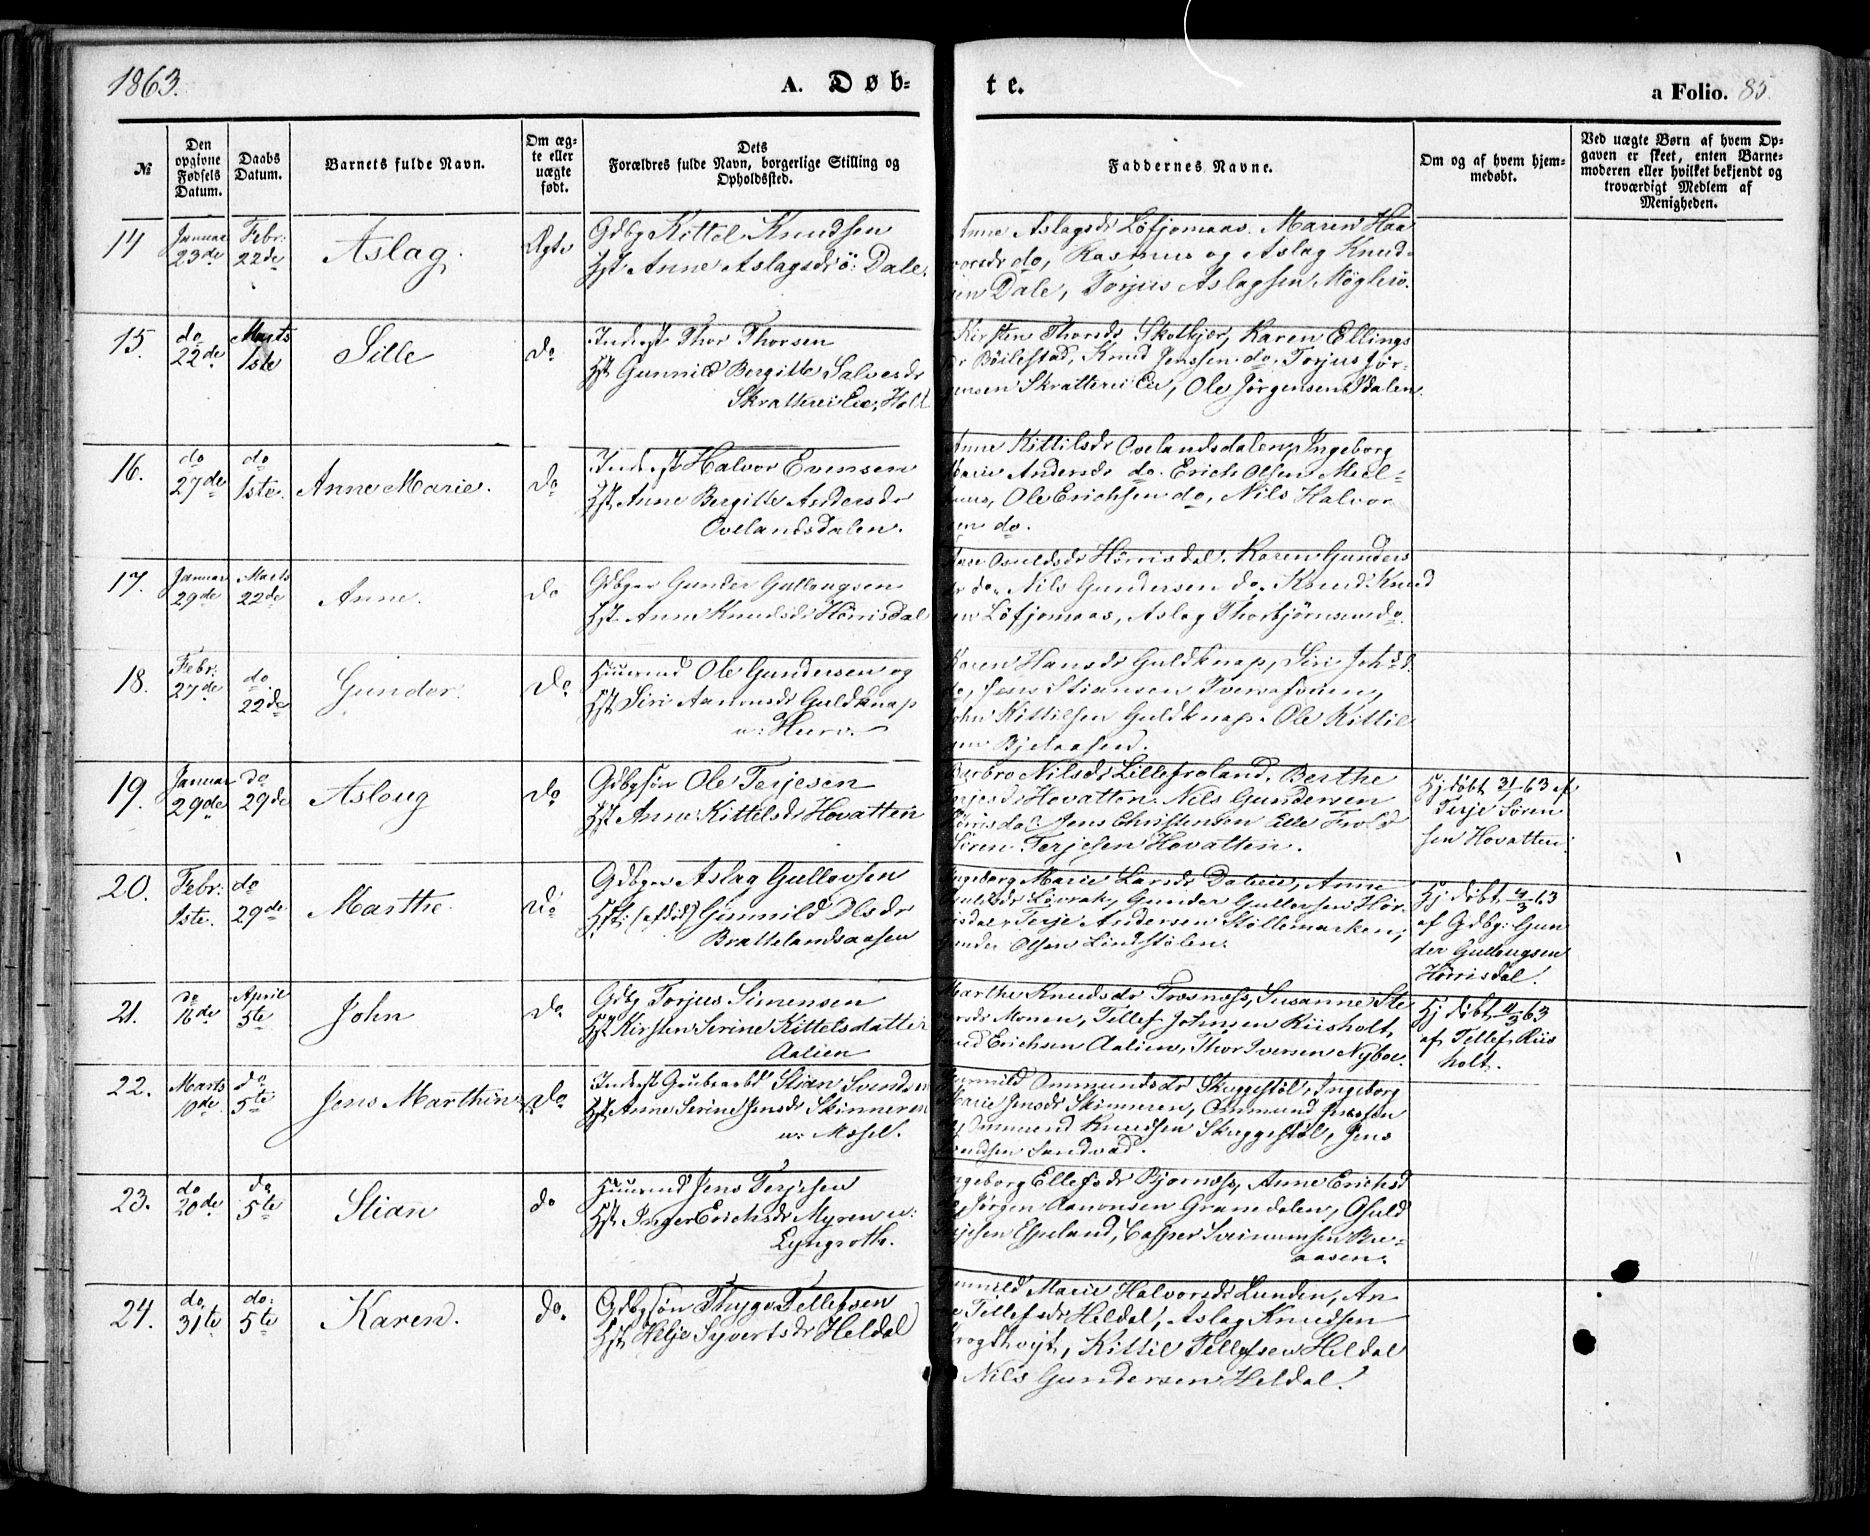 1863.
A. Døb-
te.
a Folio. 85.
№
Den opgivne Fødsels Datum.
Daabs Datum.
Barnets fulde Navn.
Om ægte eller uægte født.
Dets Forældres fulde Navn, borgerlige Stilling og Opholdssted.
Faddernes Navne.
Om og af hvem hjemmedøbt.
Ved uægte Børn af hvem Opgaven er skeet, enten Barnemoderen eller hvilket bekjendt og troværdigt Medlem af Menigheden.
14
Januar 23de
Febr: 22de
Aslag.
Ægte
Gdbg Kittel Knudsen
Hst. Anne Aslagsdr ö: Dale.
Anne Aslagsdr Löfjomaas. Maren Haa
vorsdr do, Rasmus og Aslag Knud-
sen Dale, Torjus Aslagsen
15.
do 22de
Marts 1ste
Sille
do
Inderst Thor Thorsen
Hst Gunnild Bergitte Salvesdr
Skratterei Eie, Holt
Kirsten Thorsdr Skolkjær, Karen Ellings
dr Böilestad, Knud Jenssen do. Torjus Jör-
gensen Skratterei Eie, Ole Jörgensen Dalen.
16.
do 27de
do 1ste.
Anne Marie.
do
Inderst Halvor Evensen
Hst. Anne Bergitte Andersdr
Ovelandsdalen.
Anne Kittilsdr Ovelandsdalen, Ingeborg
Marie Andersdr do. Erich Olsen
Ole Erichsen do, Nils Halvor
sen do.
17.
Januar 29de
Marts 22de
Anne.
do
Gdbgr Gunder Gullougsen
Hst. Anne Knudsdr Hörrisdal
Aase Osuldsdr Hörrisdal. Karen Gunders
dr do. Nils Gundersen do. Knud Knud
sen Löfjomaas, Aslag Thorbjörnsen do.
18.
Febr: 27de
do 22de
Gunder.
do
Huusmd Ole Gundersen og
Hst Siri Aanonsdr Guldknap
Karen Hansdr Guldknap, Siri Johsd.
do, Jens Stiansen
John Kittilsen Guldknap. Ole Kittil
sen Bjelaasen.
19.
Januar 29de
do 29de
Asloug
do
Gdbgsön Ole Terjesen
Hst Anne Kittelsdr Hovatten
Barbro Nilsdr Lillefroland. Berthe
Terjesdr Hovatten. Nils Gundersen
Hörrisdal. Jens Christensen Lille Frold
Sören Terjesen Hovatten.
Hj döbt 31/1 63 af
Terje Sören
sen Hovatten.
20.
Febr: 1ste.
do 29de
Marthe.
do
Gdbgr Aslag Gullovsen
Hst: (afdöd) Gunnild Olsdr
Brattelandsaasen
Ingeborg Marie Larsdr Daleie, Anne
Gunder Gullovsen Hör-
risdal, Terje Andersen Stöllemarken,
Gunder Olsen Lindstölen.
Hj döbt 4/3 63
af Gdbg: Gun
der Gullougsen
Hörrisdal.
21.
do 16de
April 5te
John
do
Gdbg Torjus Simensen
Hst Kirsten Serine Kittelsdatter
Aalien
Marthe Knudsdr Trosnæss, Susanne Ste
Monen, Tellef Johnsen Riisholt,
Knud Erichsen Aalien, Thor Iversen Nyboe.
Hj döbt 11/3 63
af Tellef Riis
holt.
22.
Marts 10de
do 5te
Jens Marthin
do
Inderst Grubearbd Stian Svendsen
Hst Anne Serine Jensdr Skinneren
Gunnild Ommundsdr Skuggestöl, Ingeborg
Marie Jensdr Skinneren, Ommund Jenssen
og Ommund Knudsen Skuggestöl, Jens
Sandvad.
23.
do 20de
do 5te
Stian
do
Huusmd Jens Terjesen
Hst Inger Erichsdr Myren u:
Lyngroth.
Ingeborg Ellefsdr Bjornæss, Anne Erichsd
do, Jörgen Aanonsen Gramdalen, Osuld
Terjesen Espeland, Casper Sveinumsen Bu-
aasen.
24.
do 31te
do: 5te
Karen.
do.
Gdbgsön Thyge Tellefsen
Hst Helje Syvertsdr Heldal
Gunnild Marie Halvorsdr Lunden, An
ne Tellefsdr Heldal, Aslag Knudsen
Krogthvejt, Kittil Tellefsen Heldal
Nils Gundersen Heldal.